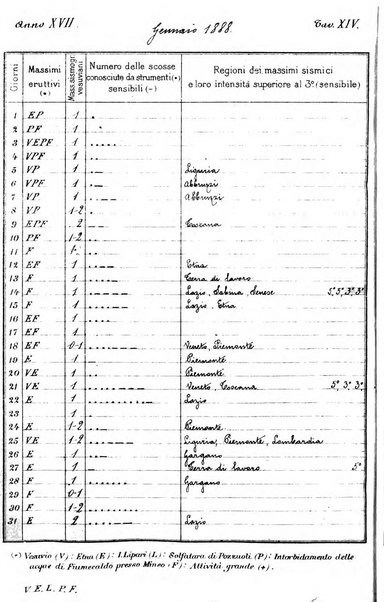 Anno XVII.
Gennaio 1888.
Tav. XIV.
Giorni
Massimi eruttivi (*)
Mass. sismogr. vesuviani
Numero delle scosse conosciute da strumenti (•) sensibili (–)
Regioni dei massimi sismici e loro intensità superiore al 3° (sensibile)
1 EP 1 .
2 PF 1 . . .
3 VEPF 1 . . . . .
4 VPF 1
5 VP 1 Liguria
6 VPF 1 Abbruzzi
7 VP 1 Abbruzzi
8 VP 1-2
9 EPF 2 Toscana
10 PF 1-2
11 F 1-
12 EF 1 Etna
13 F 1 Terra di lavoro
14 F 1 Lazio, Sabina, Senese 5° 5° 3° 3°
15 F 1 Lazio, Etna
16 EF 1
17 EF 1
18 EF 0-1 Veneto, Piemonte
19 E 1 Piemonte
20 VE 1 Piemonte
21 VE 1 Veneto, Toscana 5° 3° 3°
22 E 1 Lazio
23 1
24 E 1-2 Piemonte
25 VE 1-2 Liguria, Piemonte, Lombardia
26 E 1 Gargano
27 E 1 Terra di lavoro 5°
28 F 1 Gargano
29 F 0-1
30 F 1-2
31 E 2 Lazio
(*) Vesuvio (V): Etna (E): I. Lipari (L): Solfatara di Pozzuoli (P): Intorbidamento delle
acque di Fiumecaldo presso Mineo (F): Attività grande (+).
V E L P F